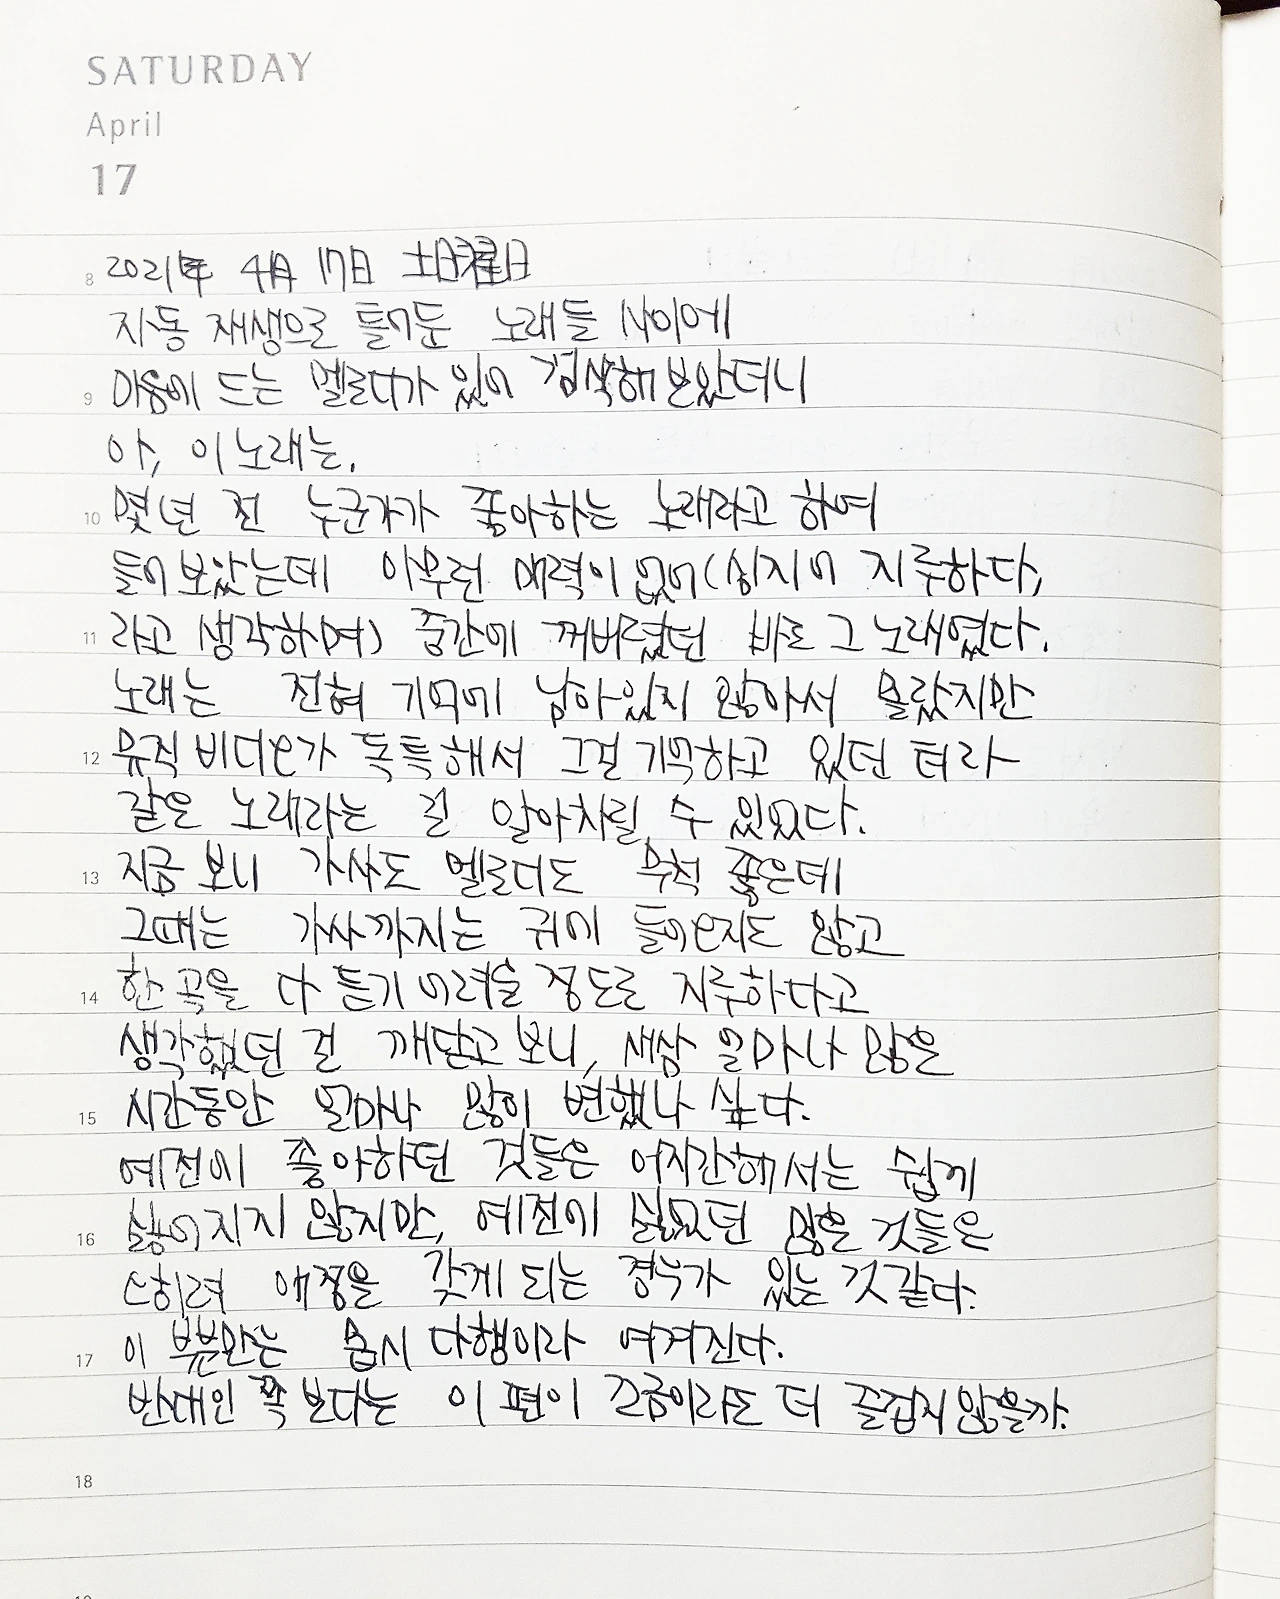 SATURDAY
April
17
8 2021年 4月 17日 土曜日
자동 재생으로 틀어둔 노래들 사이에
9 마음에 드는 멜로디가 있어 검색해 보았더니
아, 이 노래는.
10 몇 년 전 누군가가 좋아하는 노래라고 하여
들어 보았는데 아무런 매력이 없어(심지어 지루하다,
11 라고 생각하며) 중간에 꺼버렸던 바로 그 노래였다.
노래는 전혀 기억에 남아있지 않아서 몰랐지만
12 뮤직 비디오가 독특해서 그걸 기억하고 있던 터라
같은 노래라는 걸 알아차릴 수 있었다.
13 지금 보니 가사도 멜로디도 무척 좋은데
그때는 가사까지는 귀에 들어오지도 않고
14 한 곡을 다 듣기 어려울 정도로 지루하다고
생각했던 걸 깨닫고 보니, 새삼 얼마나 많은
15 시간동안 얼마나 많이 변했나 싶다.
예전에 좋아하던 것들은 어지간해서는 쉽게
16 싫어지지 않지만, 예전에 싫었던 많은 것들은
오히려 애정을 갖게 되는 경우가 있는 것 같다.
17 이 부분만는 몹시 다행이라 여겨진다.
반대인 쪽 보다는 이 편이 조금이라도 더 즐겁지 않을까.
18